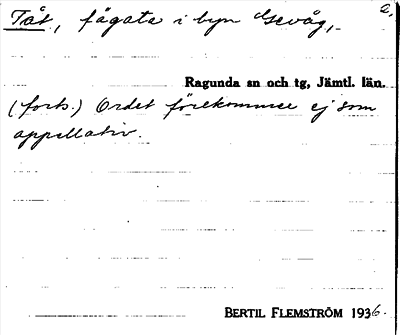 2.
Tåt, fägata i byn Gevåg,
Ragunda sn och tg, Jämtl. län.
(forts.) Ordet förekommer ej som
appellativ.
BERTIL FLEMSTRÖM 1936.